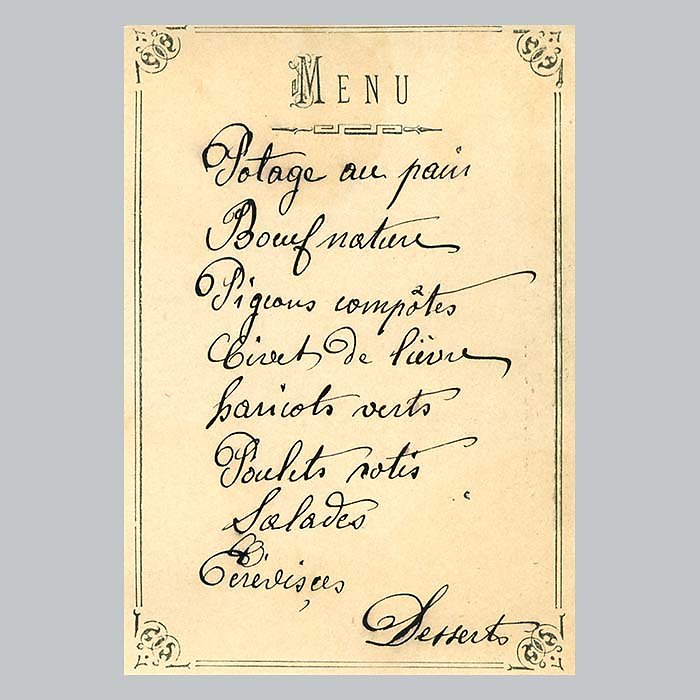 MENU
Potage au pain
Boeuf nature
Pigeons compôtes
Civet de lièvre
haricots verts
Poulets rotis
Salades
Desserts